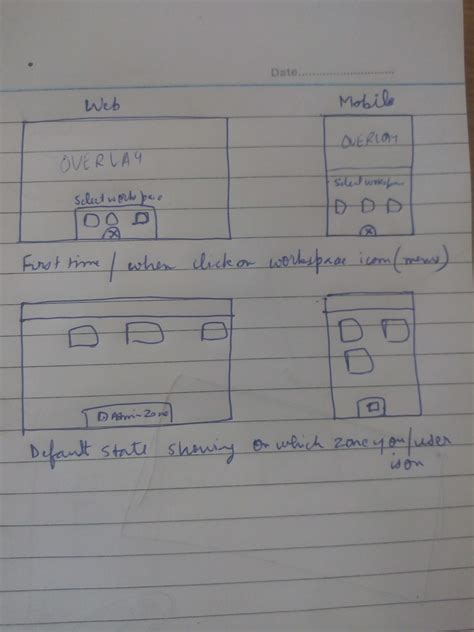 Date
Web
Mobile
OVERLAY
OVERLAY
Select workspace
Select workspace
First time / when click on workspace icon (menu)
Admin Zone
Default state showing on which zone you/user
is on